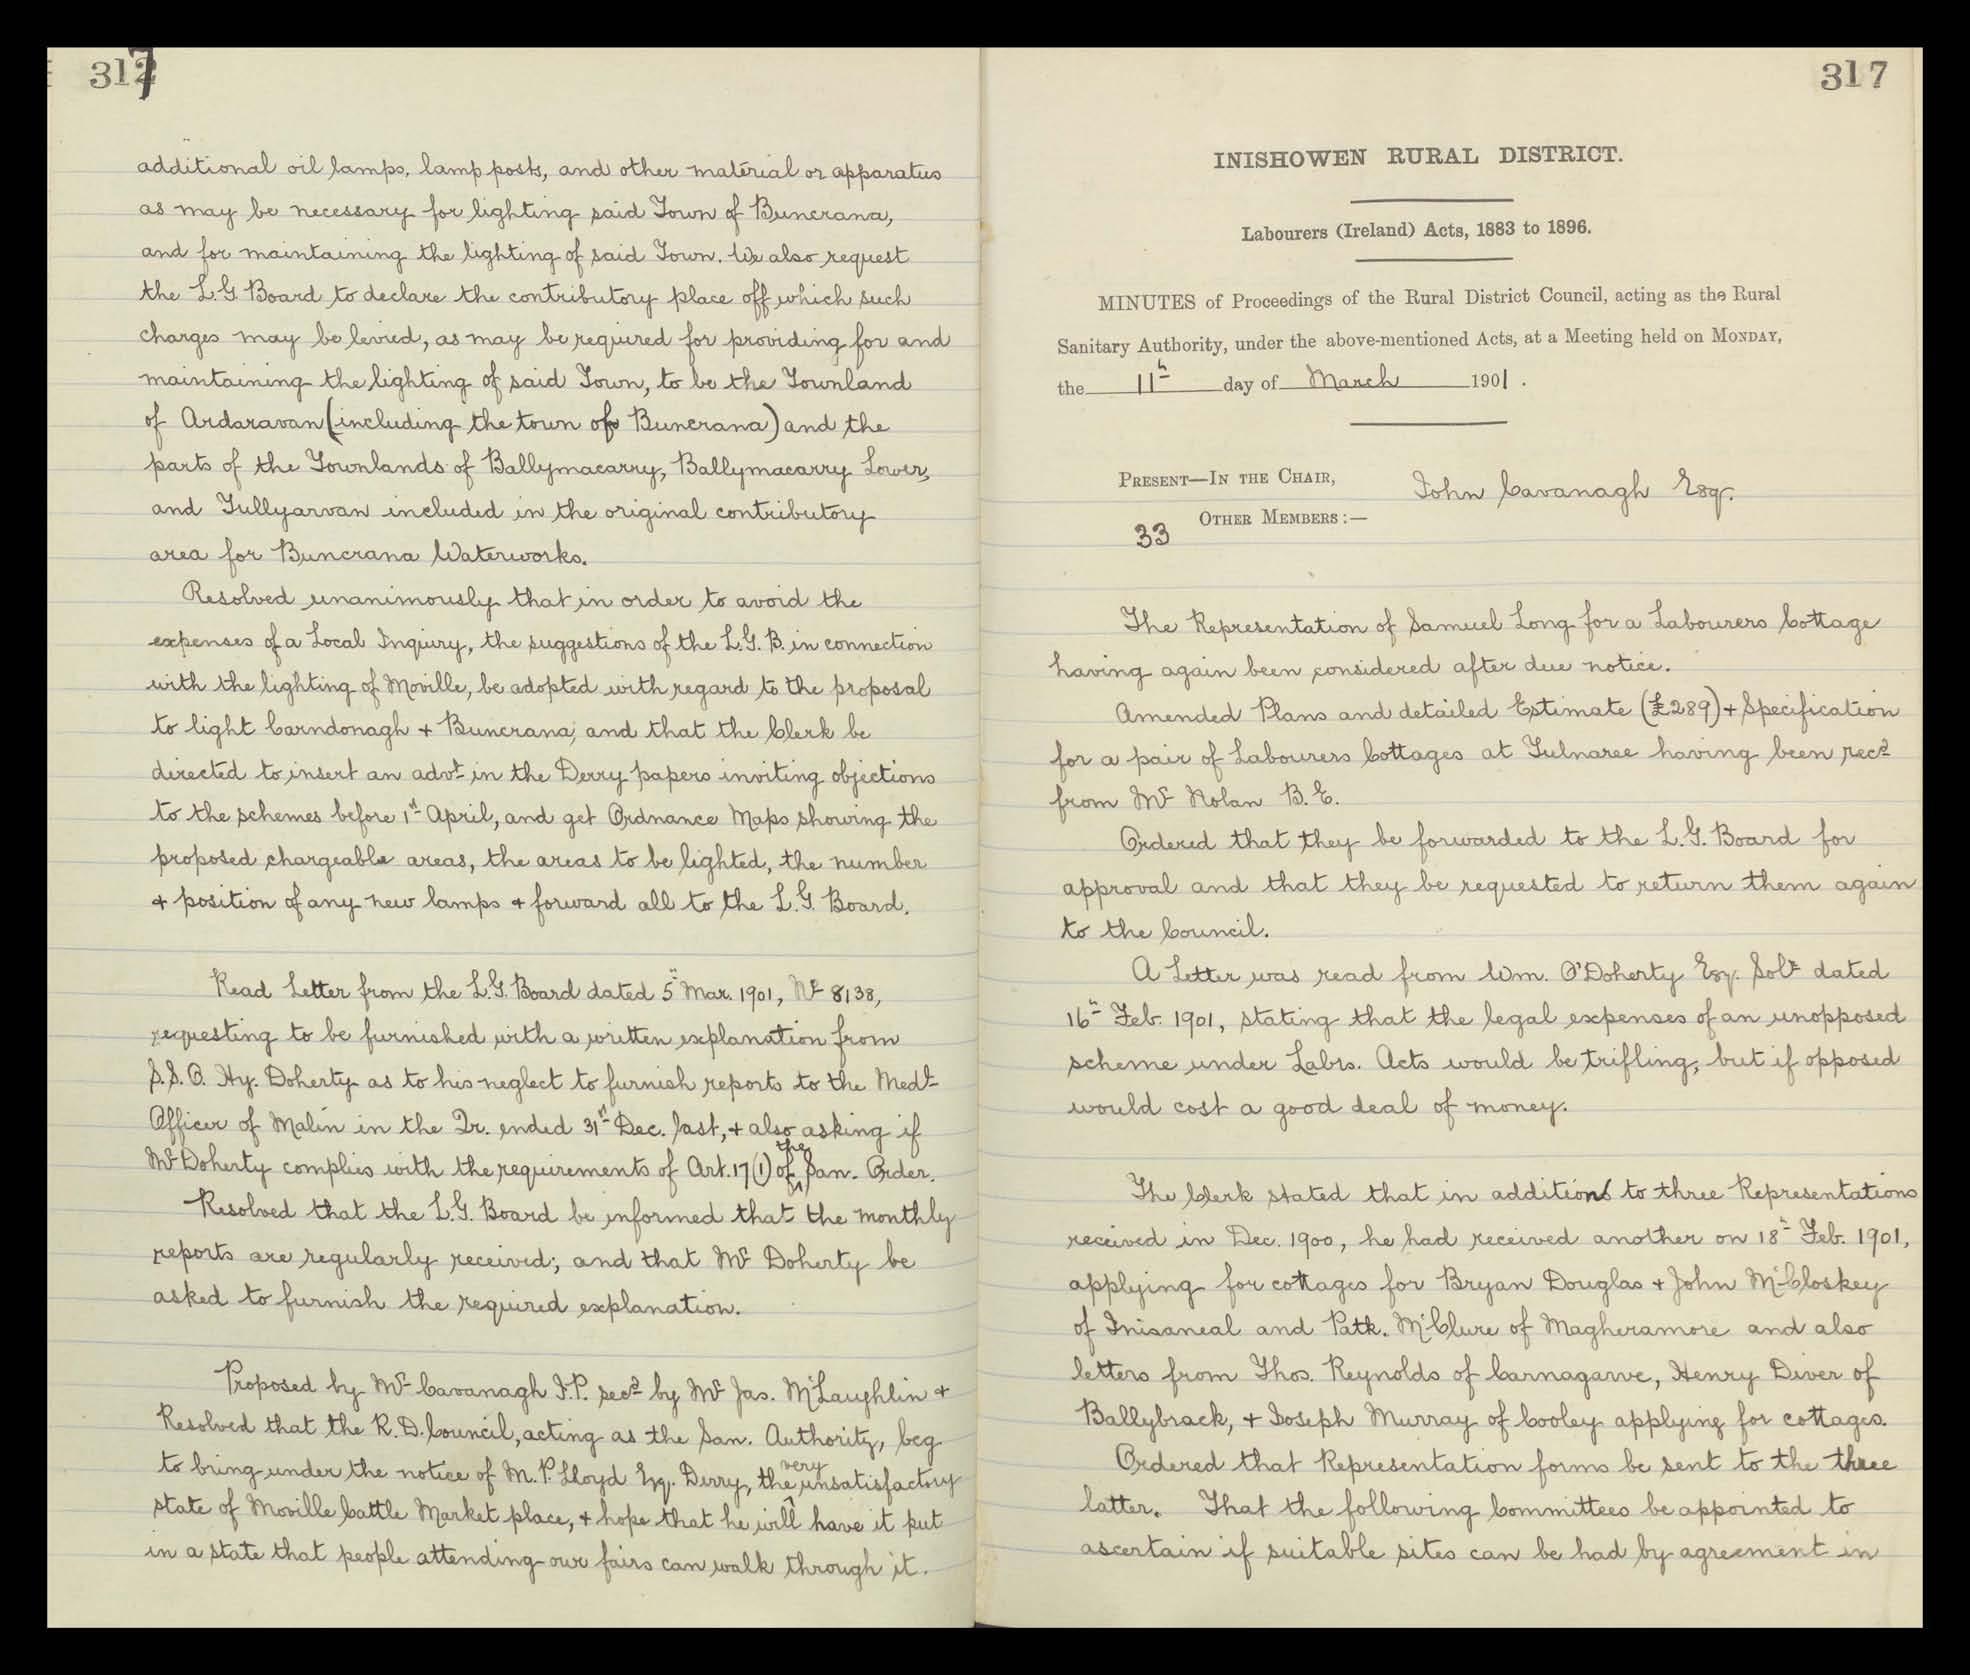 317
additional oil lamps, lamp posts, and other material or apparatus
as may be necessary for lighting said Town of Buncrana,
and for maintaining the lighting of said Town. We also request
the L.G. Board to declare the contributory place off which such
charges may be levied, as may be required for providing for and
maintaining the lighting of said Town, to be the Townland
of Ardaravan (including the town of Buncrana) and the
parts of the Townlands of Ballymacarry, Ballymacarry Lower,
and Tullyarvan included in the original contributory
area for Buncrana Waterworks.
Resolved unanimously that in order to avoid the
expenses of a Local Inquiry, the suggestions of the L.G.B. in connection
with the lighting of Moville, be adopted with regard to the proposal
to light Carndonagh + Buncrana; and that the Clerk be
directed to insert an advt. in the Derry papers inviting objections
to the schemes before 1st April, and get Ordnance Maps showing the
proposed chargeable areas, the areas to be lighted, the number
+ position of any new lamps + forward all to the L.G. Board.
Read Letter from the L.G. Board dated 5th Mar. 1901, No. 8138,
requesting to be furnished with a written explanation from
S.S.O. Hy. Doherty as to his neglect to furnish reports to the Medl.
Officer of Malin in the Qr. ended 31st Dec. last, + also asking if
Mr Doherty complies with the requirements of Art. 17(1) of the San. Order.
Resolved that the L.G. Board be informed that the monthly
reports are regularly received; and that Mr Doherty be
asked to furnish the required explanation.
Proposed by Mr Cavanagh J.P. secd by Mr Jas. McLaughlin +
Resolved that the R.D. Council, acting as the San. Authority, beg
to bring under the notice of M.P. Lloyd Esq. Derry, the very unsatisfactory
state of Moville Cattle Market place, + hope that he will have it put
in a state that people attending our fairs can walk through it.
317
INISHOWEN RURAL DISTRICT.
Labourers (Ireland) Acts, 1883 to 1896.
MINUTES of Proceedings of the Rural District Council, acting as the Rural
Sanitary Authority, under the above-mentioned Acts, at a Meeting held on MONDAY,
the 11th day of March 1901.
PRESENT—IN THE CHAIR, John Cavanagh Esqr.
33 OTHER MEMBERS:—
The Representation of Samuel Long for a Labourers Cottage
having again been considered after due notice.
Amended Plans and detailed Estimate (£289) + Specification
for a pair of Labourers Cottages at Tulnaree having been recd
from Mr Nolan B.E.
Ordered that they be forwarded to the L.G. Board for
approval and that they be requested to return them again
to the Council.
A Letter was read from Wm. O'Doherty Esq. Solr dated
16th Feb. 1901, stating that the legal expenses of an unopposed
scheme under Labrs. Acts would be trifling, but if opposed
would cost a good deal of money.
The Clerk stated that in addition to three Representations
received in Dec. 1900, he had received another on 18th Feb. 1901,
applying for cottages for Bryan Douglas + John McCloskey
of Inisaneal and Patk. McClure of Magheramore and also
letters from Thos. Reynolds of Carnagarve, Henry Diver of
Ballybrack, + Joseph Murray of Cooley applying for cottages.
Ordered that Representation forms be sent to the three
latter. That the following Committees be appointed to
ascertain if suitable sites can be had by agreement in